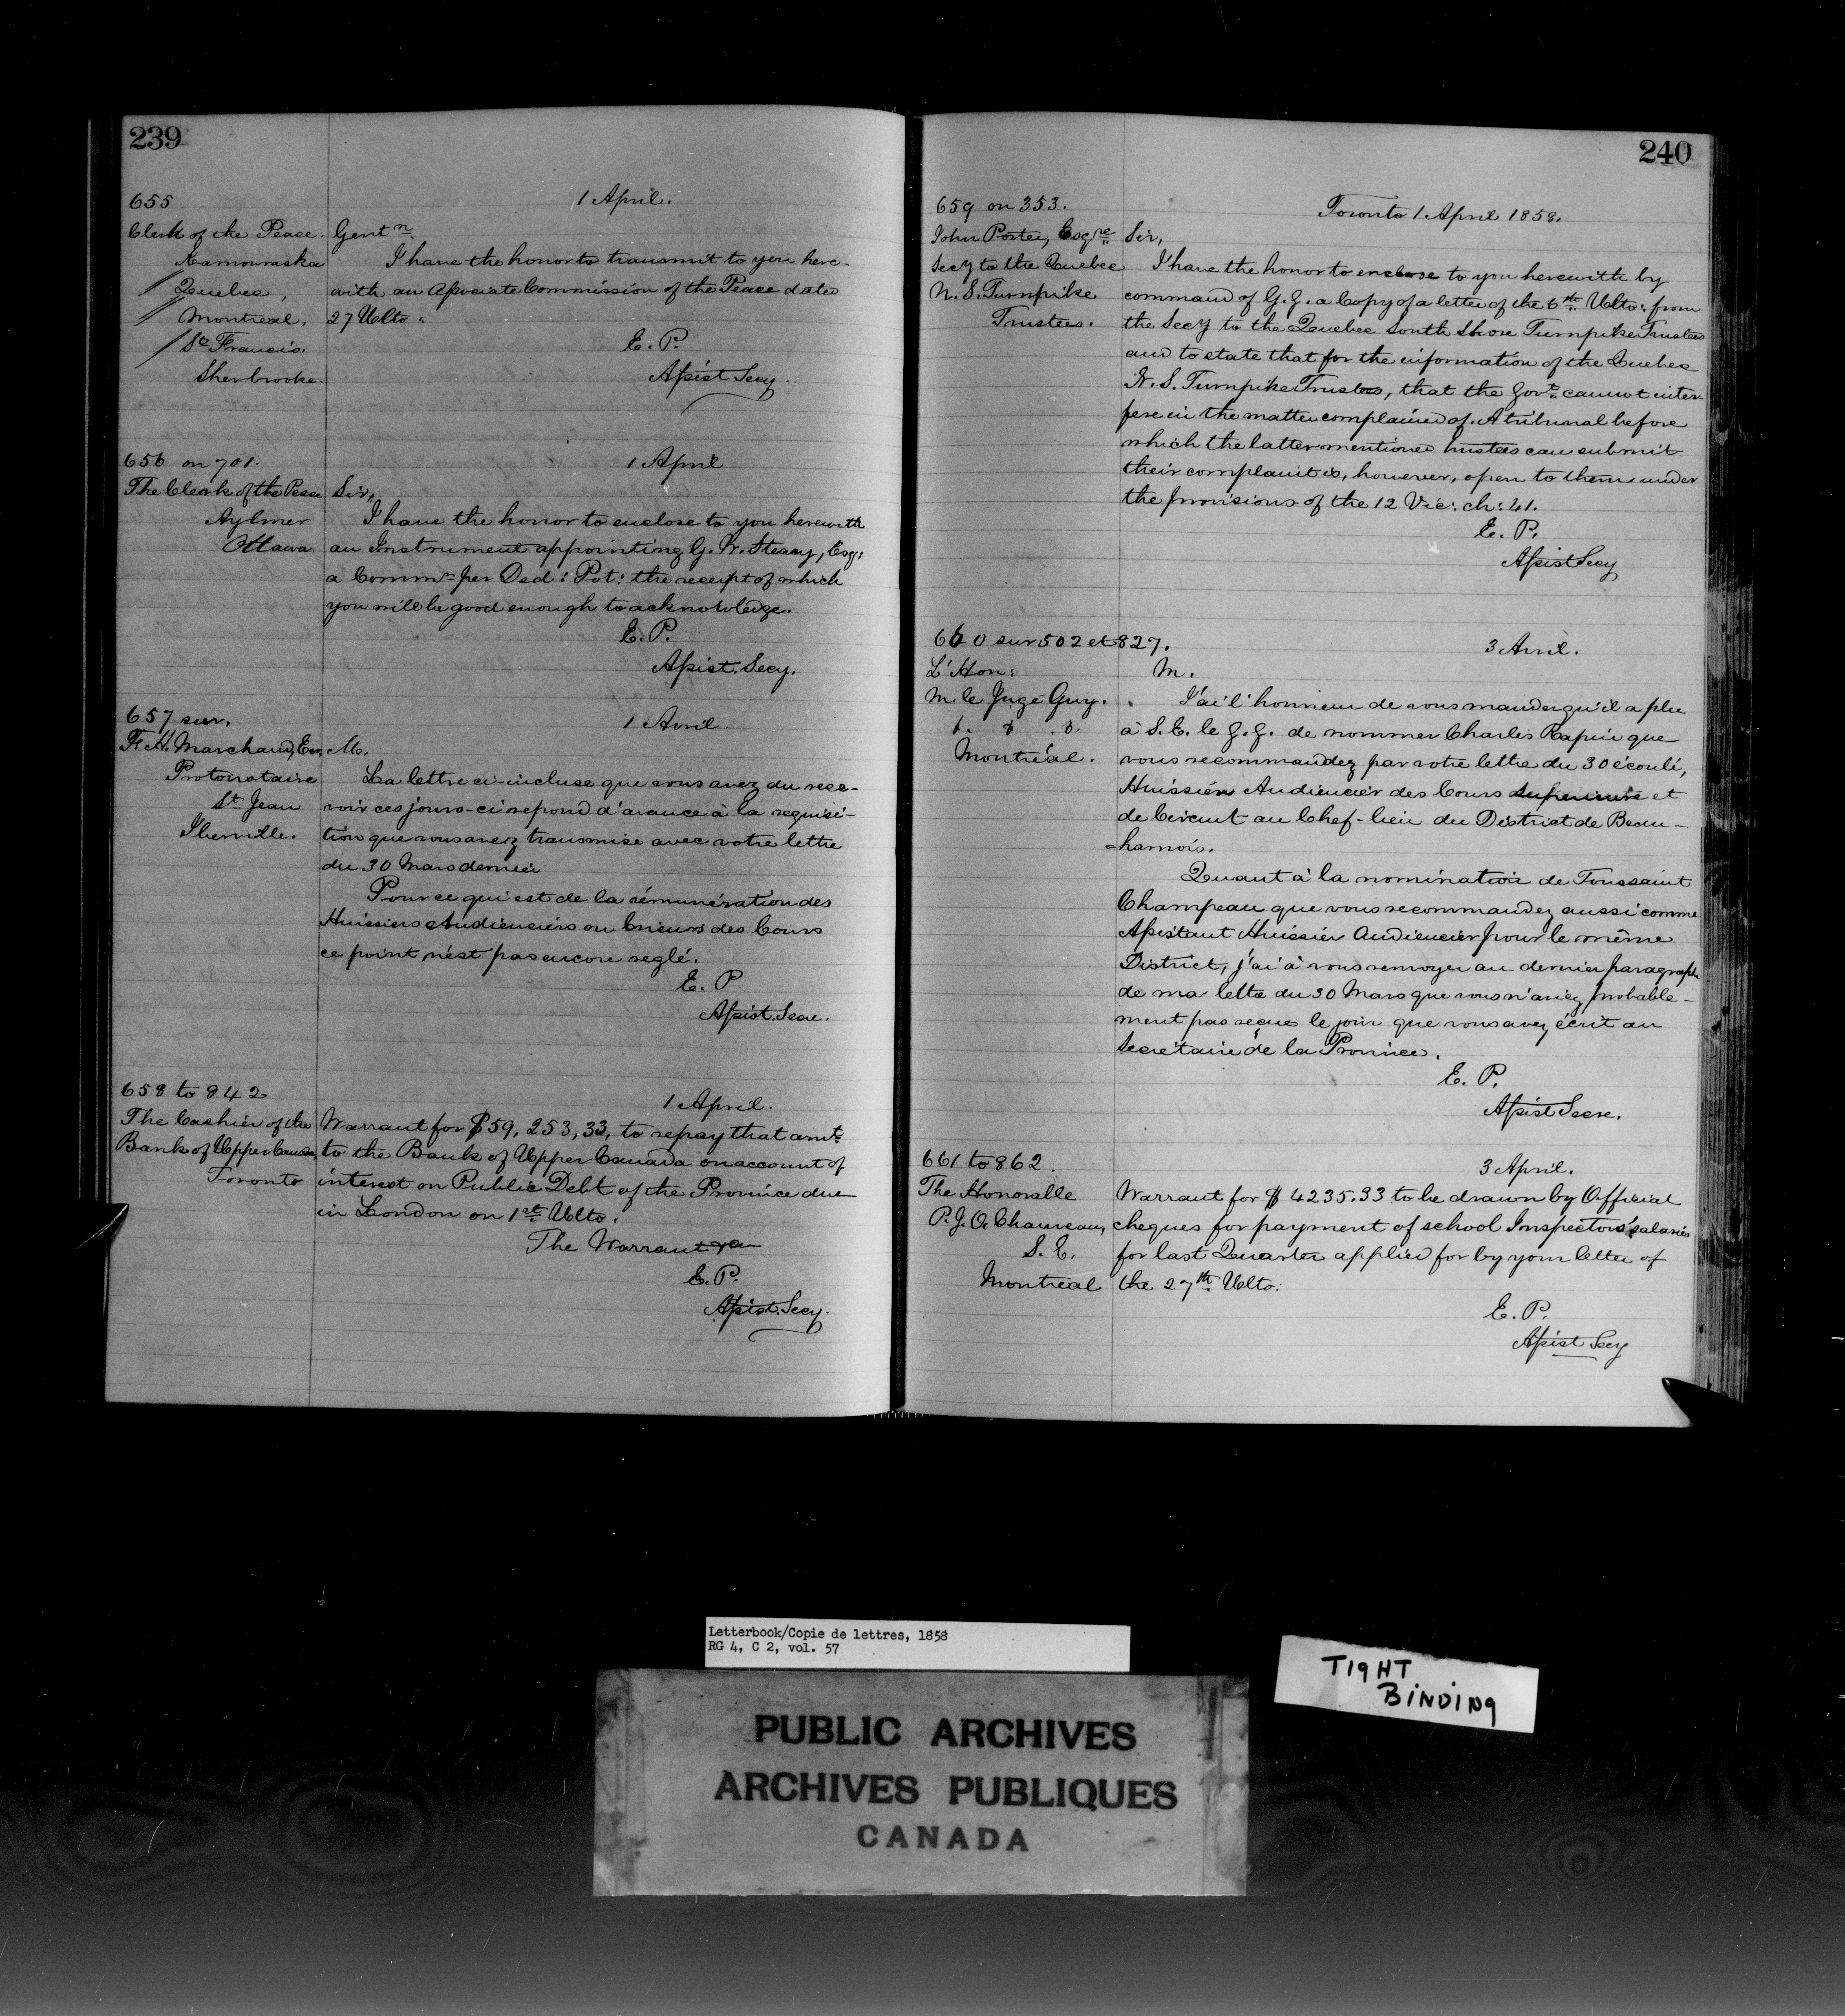 239
655
1 April.
Clerk of the Peace.
Kamouraska
Quebec,
Montreal,
St. Francis.
Sherbrooke.
Gentn.
I have the honor to transmit to you here-
with an Associate Commission of the Peace dated
27 Ulto.
E. P.
Assist. Secy.
656 on 701.
1 April
The Clerk of the Peace
Aylmer
Ottawa.
Sir,
I have the honor to enclose to you herewith
an Instrument appointing G. W. Steacy, Esq:
a Commr. per Ded: Pot: the receipt of which
you will be good enough to acknowledge.
E. P.
Assist. Secy.
657 sur.
1 Avril.
F. H. Marchand, Esq,
Protonotaire
St. Jean
Iberville.
M.
La lettre ci-incluse que vous avez du rece-
voir ces jours-ci repond d'avance à la requisi-
tion que vous avez transmise avec votre lettre
du 30 Mars dernier
Pour ce qui est de la rémunération des
Huissiers Audienciers ou Crieurs des Cours
ce point n'est pas encore reglé.
E. P.
Assist. Secre.
658 to 842
1 April.
The Cashier of the
Bank of Upper Canada,
Toronto
Warrant for $59,253,33, to repay that amt.
to the Bank of Upper Canada on account of
interest on Public Debt of the Province due
in London on 1st. Ulto.
The Warrant
E. P.
Assist. Secy.
240
659 on 353.
Toronto 1 April 1858.
John Porter, Esqre
Secy to the Quebec
N. S. Turnpike
Trustees.
Sir,
I have the honor to enclose to you herewith by
command of G. G. a Copy of a letter of the 6th. Ulto: from
the Secy to the Quebec South Shore Turnpike Trustees
and to state that for the information of the Quebec
N. S. Turnpike Trustees, that the Govt. cannot inter-
fere in the matter complained of. A tribunal before
which the latter mentioned trustees can submit
their complaint is, however, open to them under
the provisions of the 12 Vic: ch: 41.
E. P.
Assist Secy
660 sur 502 et 827.
3 Avril.
L'Hon:
M. le Juge Guy.
&. &. &.
Montréal.
M.
J'ai l'honneur de vous mander qu'il a plu
à S. E. le G. G. de nommer Charles Rapin que
vous recommandez par votre lettre du 30 écoulé,
Huissier Audiencier des Cours Superieure et
de Circuit au Chef-lieu du District de Beau-
=harnois.
Quant à la nomination de Toussaint
Champeau que vous recommandez aussi comme
Assistant Huissier Audiencier pour le même
District, j'ai à vous renvoyer au dernier paragraphe
de ma lettre du 30 Mars que vous n'aviez probable-
ment pas reçue le jour que vous avez écrit au
Secretaire de la Province.
E. P.
Assist Secre.
661 to 862.
3 April.
The Honorable
P. J. O. Chauveau,
S. E.
Montreal
Warrant for $4235.33 to be drawn by Official
cheques for payment of school Inspectors' salaries
for last Quarter applied for by your letter of
the 27th. Ulto:
E. P.
Assist Secy
Letterbook/Copie de lettres, 1858
RG 4, C 2, vol. 57
TIGHT
BINDING
PUBLIC ARCHIVES
ARCHIVES PUBLIQUES
CANADA